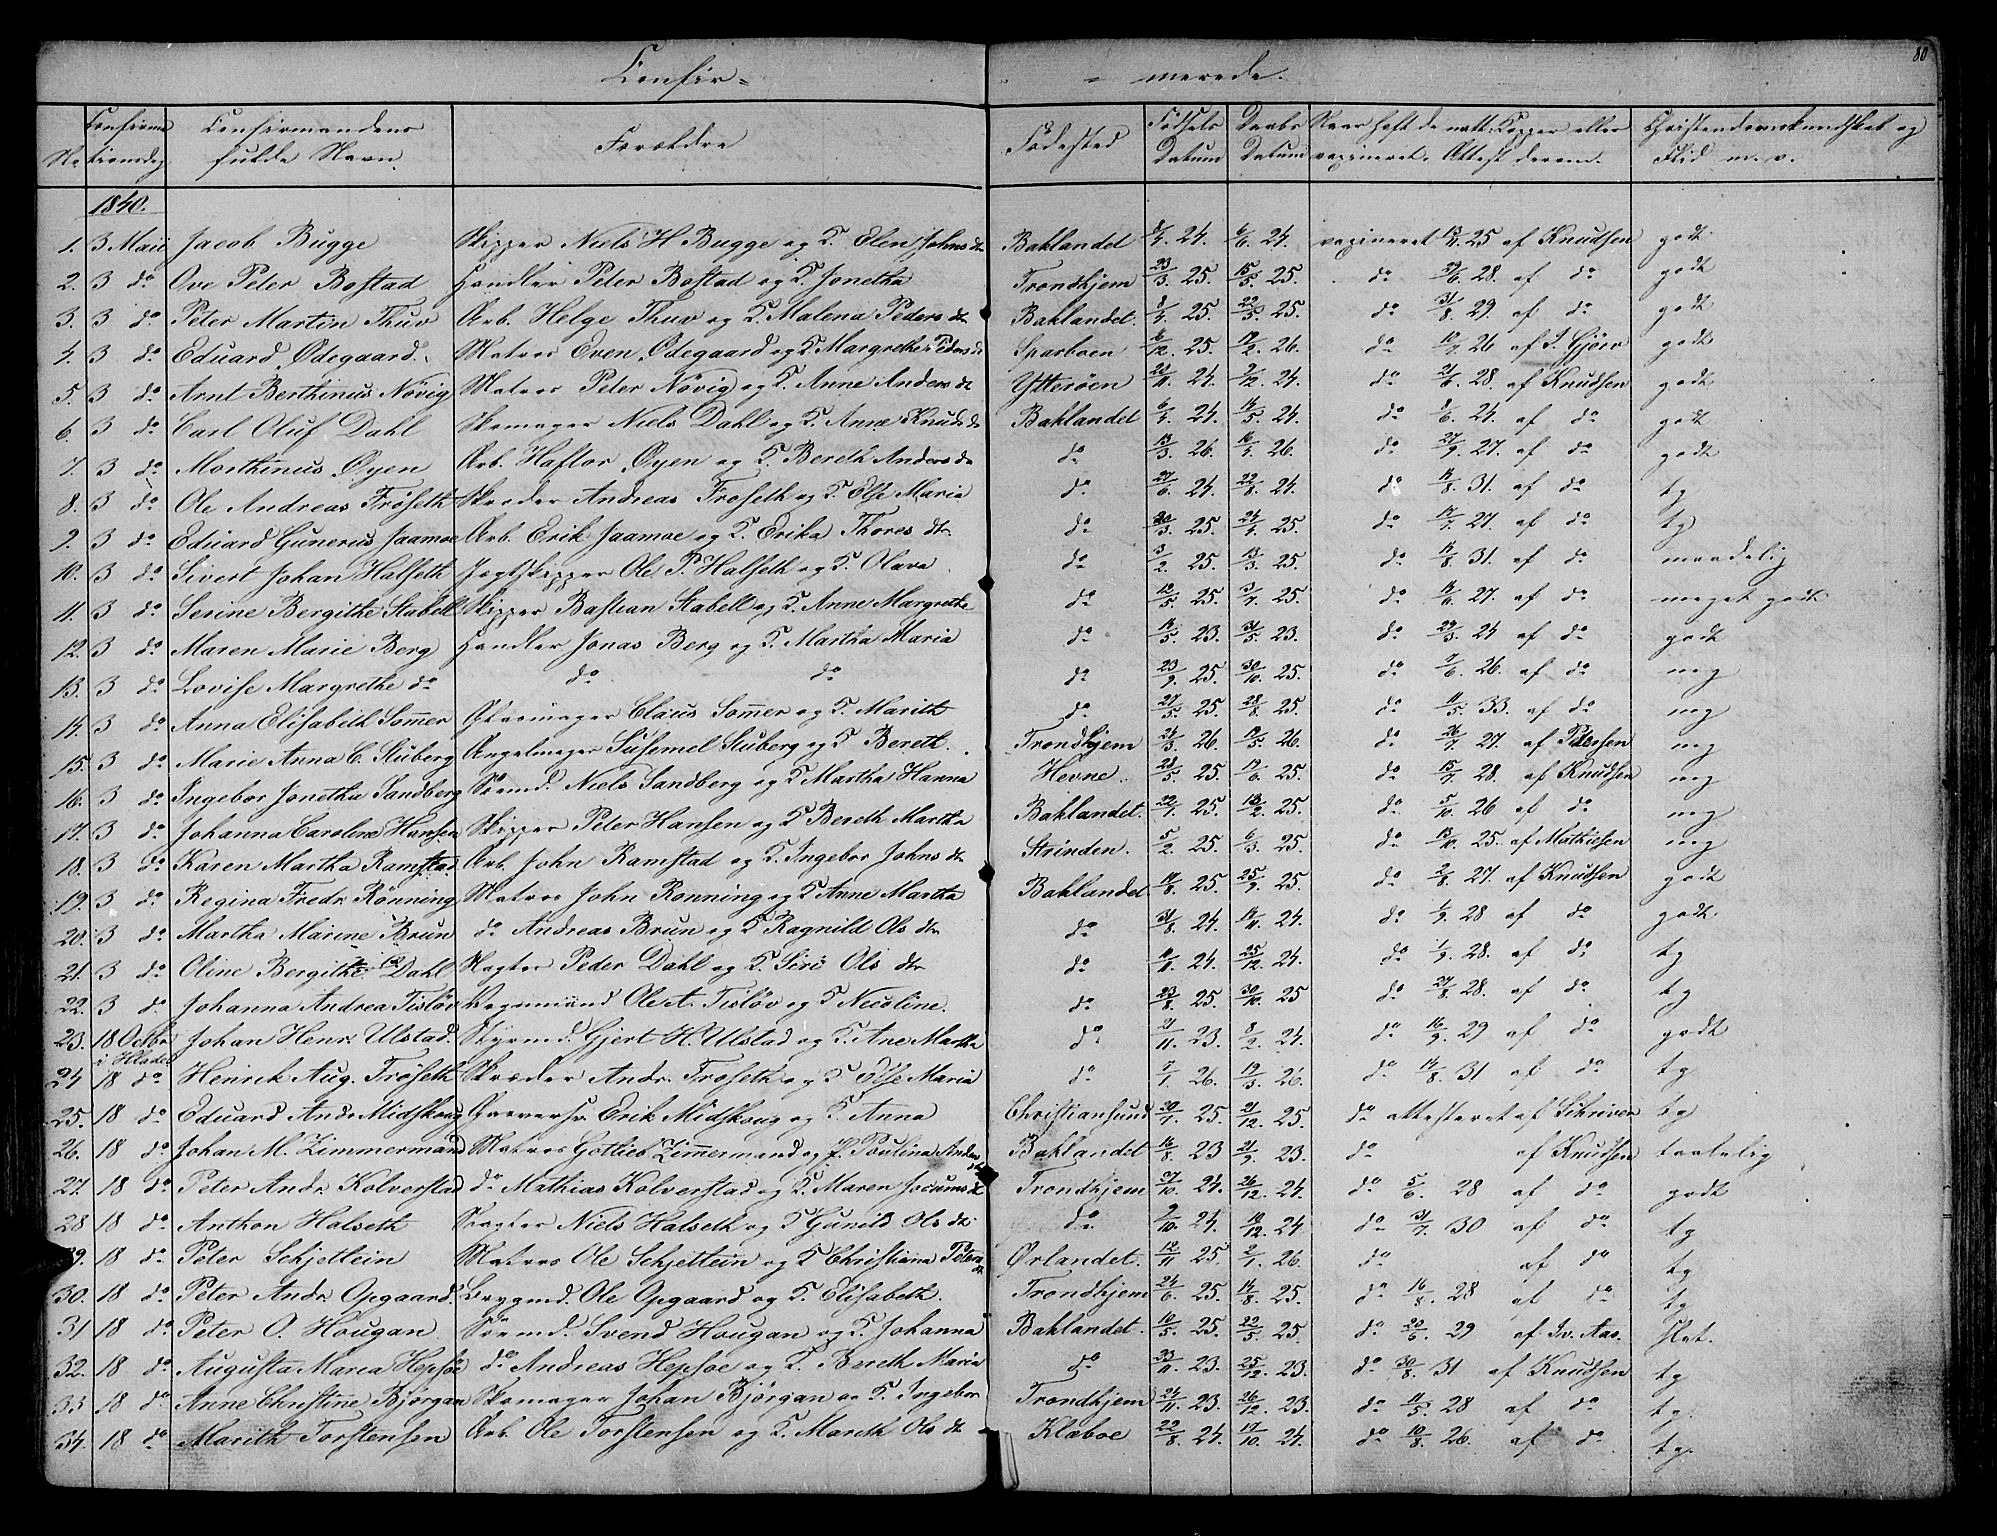 80
Confir= = merede.
No Confirmationsdag Confirmandens fulde Navn Forældre Födested Födsels Datum Daabs Datum Naar haft de natl. Kopper eller vaxineret. Attest derom. Christendomskundskab og Flid m. v.
1840.
1. 3 Maii Jacob Bugge Skipper Niels H Bugge og K. Elen Johns dr Baklandet 8/4 24. 6/6 24. vaxineret 25 af Knudsen godt
2. 3 do Ove Peter Bostad Handler Peter Bostad og K. Jonetha Trondhjem 23/3 25. 15/5 25. do 29/6 28. af do godt
3. 3 do Peter Martin Thuv Arb. Helge Thuv og K. Malena Peders dr Baklandet. 8/4 25. 22/5 25. do 31/8 29. af do godt
4. 3 do Eduard Ødegaard. Matros Even Ødegaard og K Margrethe Peders dr Sparboen 6/12 25. 19/2 26. do 26 af J. Gjörv godt
5. 3 do Arnt Berthinus Növig Matros Peter Növig og K. Anne Anders dr Ytteröen 24. 9/12 24. do 21/6 28. af Knudsen godt
6. 3 do Carl Oluf Dahl Skomager Niels Dahl og K. Anne Knuds dr Baklandet 6/4 24. 14/5 24. do 8/6 24. af do godt
7. 3 do Morthinus Øyen Arb. Haftor Øyen og K. Bereth Anders dr do 13/3 26. 16/4 26. do 27/9 27. af do godt
8. 3 do Ole Andreas Fröseth Skræder Andreas Froseth og K. Else Maria do 27/6 24. 22/8 24. do 31. af do tg
9. 3 do Eduard Gunerus Jaamoe Arb. Erik Jaamoe og K. Erika Thores dr. do 20/3 25. 24/4 25. do 27. af do tg
10. 3 do Sivert Johan Halseth Jægtskipper Ole P. Halseth og K. Olava do 3/2 25. 13/3 25. do 31. af do maadelig
11. 3 do Serine Bergithe Stabell Skipper Bastian Stabell og K. Anne Margrethe do 12/5 25. 3/7 25. do 27. af do meget godt
12. 3 do Maren Marie Berg Handler Jonas Berg og K. Martha Maria do 14/5 23. 31/5 23. do 29/3 24 af do godt
13. 3 do Lovise Margrethe do do do do 23/9 25. 30/10 25. do 7/6 26. af do mg
14. 3 do Anna Elisabeth Sommer Claus Sommer og K. Marith do 27/5 25. 28/8 25. do 11/5 33. af do mg
15. 3 do Marie Anna C. Stuberg Angelmager Susemel Stuberg og K Bereth. Trondhjem 24/3 26. 19/5 26. do 26/7 27. af Petersen mg
16. 3 do Ingebor Jonetha Sandberg Sömd. Niels Sandberg og K Martha Hanna Hevne. 28/5 25. 19/6 25. do 15/7 28. af Knudsen mg
17. 3 do Johanna Caroline Hansen Skipper Peter Hansen og K Bereth Martha Baklandet. 22/1 25. 13/2 25. do 5/10 26 af do mg
18. 3 do Karen Martha Ramstad Arb. John Ramstad og K. Ingebor Johns dr Strinden. 5/2 25. 6/3 25. do 13/10 25. af Mathiesen mg
19. 3 do Regina Fredr. Rönning Matros John Ronning og K Anne Martha Baklandet 14/8 25. 25/9 25. do 2/8 27. af Knudsen godt
20. 3 do Martha Marine Brun do Andreas Brun og K Ragnild Ols dr do 31/8 24. 14/11 24. do 1/9 28 af do godt
21. 3 do Oline Bergithe Dahl Vagter Peder Dahl og K. Siri Ols dr do 11/11 24. 25/12 24. do 1/9 28. af do tg
22. 3 do Johanna Andrea Tislöv Ole A. Tislöv og K Nicoline. do 23/8 25. 30/10 25 do 27/8 28. af do tg
23. 18 Octbr Johan Henr. Ulstad. Styrmd. Gjert H. Ulstad og K. Ane Martha do 21/11 23. 8/2 24. do 16/9 29 af do godt
i Hlade
24 18 do Henrik Aug. Fröseth Skræder Andr. Froseth og K Else Maria do 7/1 26. 19/3 26. do 14/8 31 af do tg
25. 18 do Eduard Andr. Midskoug Erik Midskoug og K. Anna Christiansund 20/7 25. 21/12 25. do attesteret af Schriver tg
26. 18 do Johan M. Zimmermand Matros Gotlieb Zimmermand og K Paulina Anders dr Baklandet 16/8 23 21/9 23. do af Knudsen taalelig
27. 18 do Peter Andr. Kolverstad do Mathias Kolverstad og K. Maren Jocums dr Trondhjem 27/10 24. 26/12 24. do 5/6 28 af do godt
28 18 do Anthon Halseth Vagter Niels Halseth og K Gunild Ols dr. do. 9/10 24. 10/12 24. do 31/7 30 af do tg
29. 18 do Peter Schjetlein Matros Ole Schjetlein og K Christiana Peters dr Ørlandet. 12/11 25. 2/1 26. do af do tg
30. 18 do Peter Andr. Opgaard. Brygmd. Ole Opgaard og K. Elisabeth. Trondhjem 24/6 25. 14/8 25. do 16/8 28 af do tg
31 18 do Peter O. Hougan Sömd. Svend Hougan og K. Johanna Baklandet. 16/5 25. 22/5 25. do 20/6 29 af Iv. Aas. Slet.
32. 18 do Augusta Maria Hepsöe do Andreas Hepsoe og K. Bereth Maria do 23/11 23. 25/12 23. do 30/8 31 af Knudsen tg
33 18 do Anne Christine Bjørgan Skomager Johan Bjørgan og K. Ingebor Trondhjem 24/11 23. 26/12 23. do 11/5 28 af do tg.
34. 18 do Marith Torstensen Arb. Ole Torstensen og K. Mareth Ols dr Klæboe 22/8 24. 17/10 24. do 10/8 26. af do tg.